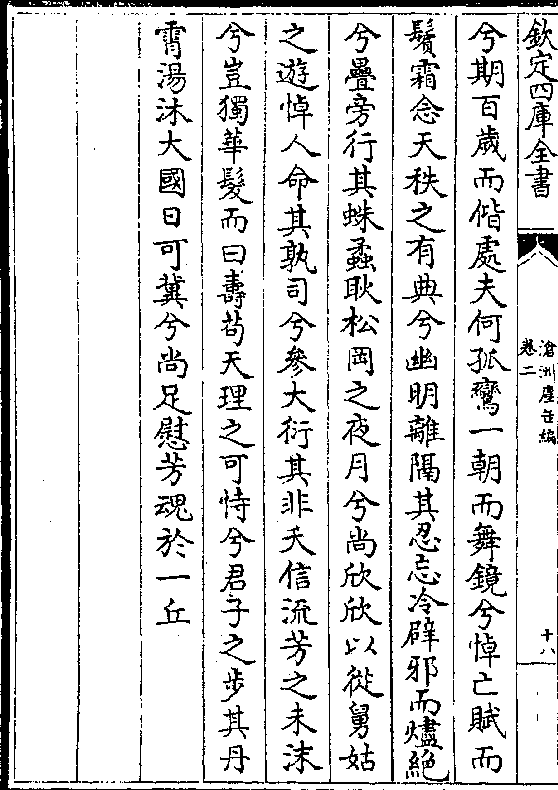 欽定四庫全書
滄洲塵缶編
卷二
十八
兮期百歲而偕處夫何孤鸞一朝而舞鏡兮悼亡賦而
鬢霜念天秩之有典兮幽明離隔其忍忘冷辟邪而燼絕
兮疊旁行其蛛蟊耿松岡之夜月兮尚欣欣以從舅姑
之遊悼人命其孰司兮參大衍其非夭信流芳之未沬
兮豈獨華髮而曰壽茍天理之可恃兮君子之步其丹
霄湯沐大國日可冀兮尚足慰芳魂於一丘